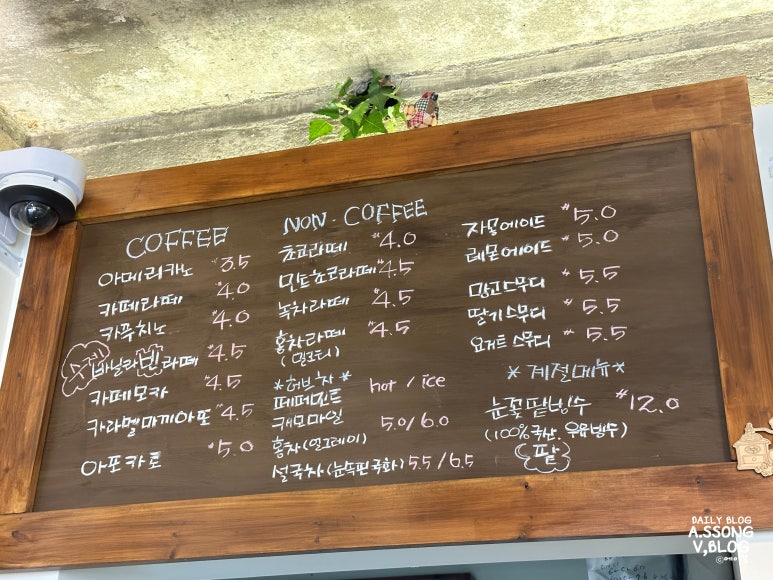 COFFEE
아메리카노 ₩3.5
카페라떼 ₩4.0
카푸치노 ₩4.0
수제 바닐라빈라떼 ₩4.5
카페모카 ₩4.5
카라멜마끼아또 ₩4.5
아포카토 ₩5.0
NON-COFFEE
초코라떼 ₩4.0
민트초코라떼 ₩4.5
녹차라떼 ₩4.5
홍차라떼 ₩4.5
(밀크티)
*허브차* hot / ice
페페민트
캐모마일 5.0/6.0
홍차(얼그레이)
설국차(눈속핀국화) 5.5/6.5
자몽에이드 ₩5.0
레몬에이드 ₩5.0
망고스무디 ₩5.5
딸기스무디 ₩5.5
요거트스무디 ₩5.5
*계절메뉴*
눈꽃팥빙수 ₩12.0
(100%국산, 우유빙수)
팥
DAILY BLOG
A.SSONG
V,BLOG